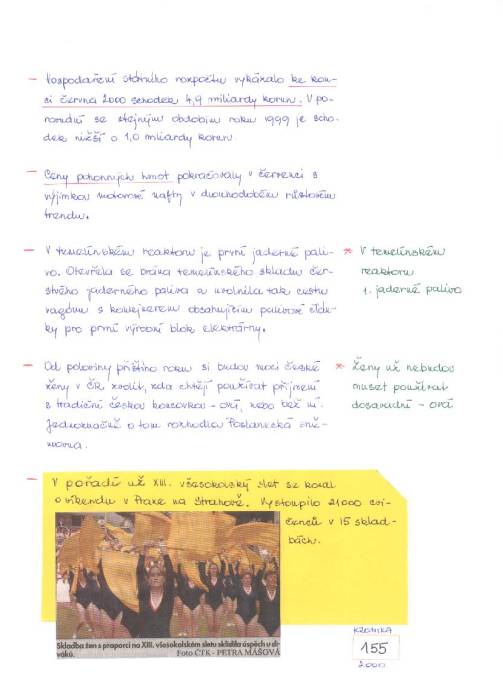 – Hospodaření státního rozpočtu vykázalo ke kon-
ci června 2000 schodek 4,9 miliardy korun. V po-
rovnání se stejným obdobím roku 1999 je scho-
dek nižší o 1,0 miliardy korun.
– Ceny pohonných hmot pokračovaly v červenci s
výjimkou motorové nafty v dlouhodobém růstovém
trendu.
– V temelínském reaktoru je první jaderné pali-
vo. Otevřela se brána temelínského skladu čer-
stvého jaderného paliva a uvolnila tak cestu
vagónu s kontejnerem obsahujícím palivové člán-
ky pro první výrobní blok elektrárny.
* V temelínském
reaktoru
1. jaderné palivo
– Od poloviny příštího roku si budou moci české
ženy v ČR zvolit, zda chtějí používat příjmení
s tradiční českou koncovkou -ová, nebo bez ní.
Jednoznačně o tom rozhodla Poslanecká sně-
movna.
* Ženy už nebudou
muset používat
dosavadní - ová
– V pořadí už XIII. všesokolský slet se konal
o víkendu v Praze na Strahově. Vystoupilo 21000 cvi-
čenců v 15 sklad-
bách.
Skladba žen s praporci na XIII. všesokolském sletu sklidila úspěch u di-
váků.
Foto ČTK - PETRA MÁŠOVÁ
KRONIKA
155
2000